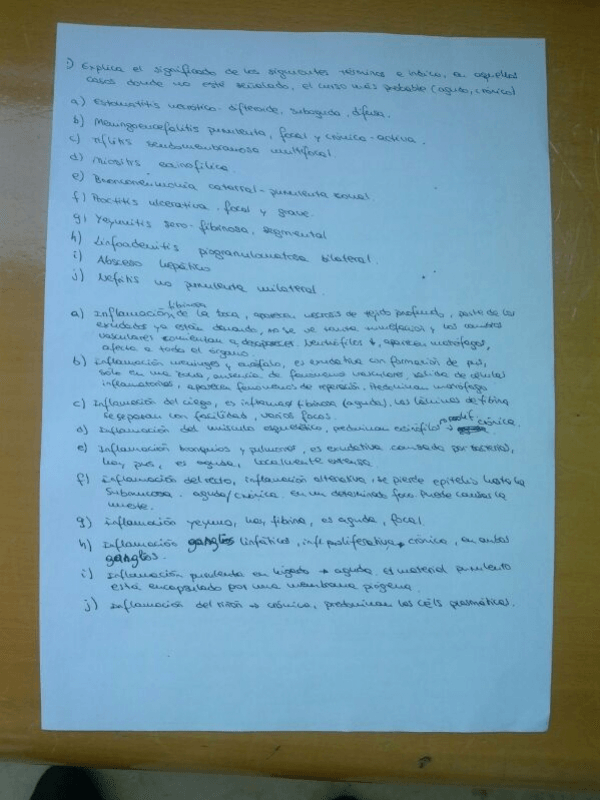 1) Explica el significado de los siguientes términos e indica, en aquellos
casos donde no esté señalado, el curso más probable (agudo, crónico)
a) Estomatitis necrótico-difteroide, subaguda, difusa.
b) Meningoencefalitis purulenta, focal y crónica-activa.
c) Tiflitis seudomembranosa multifocal.
d) Miositis eosinofílica.
e) Bronconeumonía catarral-purulenta zonal.
f) Proctitis ulcerativa focal y grave.
g) Yeyunitis sero-fibinosa, segmental
h) Linfoadenitis piogranulomatosa bilateral.
i) Absceso hepático
j) Nefritis no purulenta unilateral.
fibinosa
a) Inflamación de la boca, aparece necrosis de tejido profundo, parte de los
exudados ya están drenando, no se ve tantos y los cambios
vasculares comientan a desaparecer. Neutrófilos ↓, aparecen macrófagos,
afecta a todo el órgano.
b) Inflamación meninges y encéfalo, es exudativa con formación de pus,
solo en una zona, ausencia de fenómenos vasculares, salida de células
inflamatorias, aparecen fenómenos de reparación. Predominan macrófagos
c) Inflamación del ciego, es inflamac fibinosa (aguda), las láminas de fibina
se separan con facilidad, varios focos.
d) Inflamación del músculo esquelético, predominan eosinófilos crónica.
e) Inflamación bronquios y pulmones, es exudativa causada por bacterias,
hay pus, es aguda, localmente extensa.
f) Inflamación del recto, inflamación alterativa, se pierde epitelio hasta la
submucosa. aguda/crónica. en un determinado foco. Puede causar la
muerte.
g) inflamación yeyuno, hay fibina, es aguda, focal.
h) Inflamación ganglios linfáticos, infl proliferativa → crónica, en ambos
ganglios.
i) Inflamación purulenta en hígado → aguda el material purulento
está encapsulado por una membrana piógena.
j) Inflamación del riñón → crónica, predominan las céls plasmáticas.